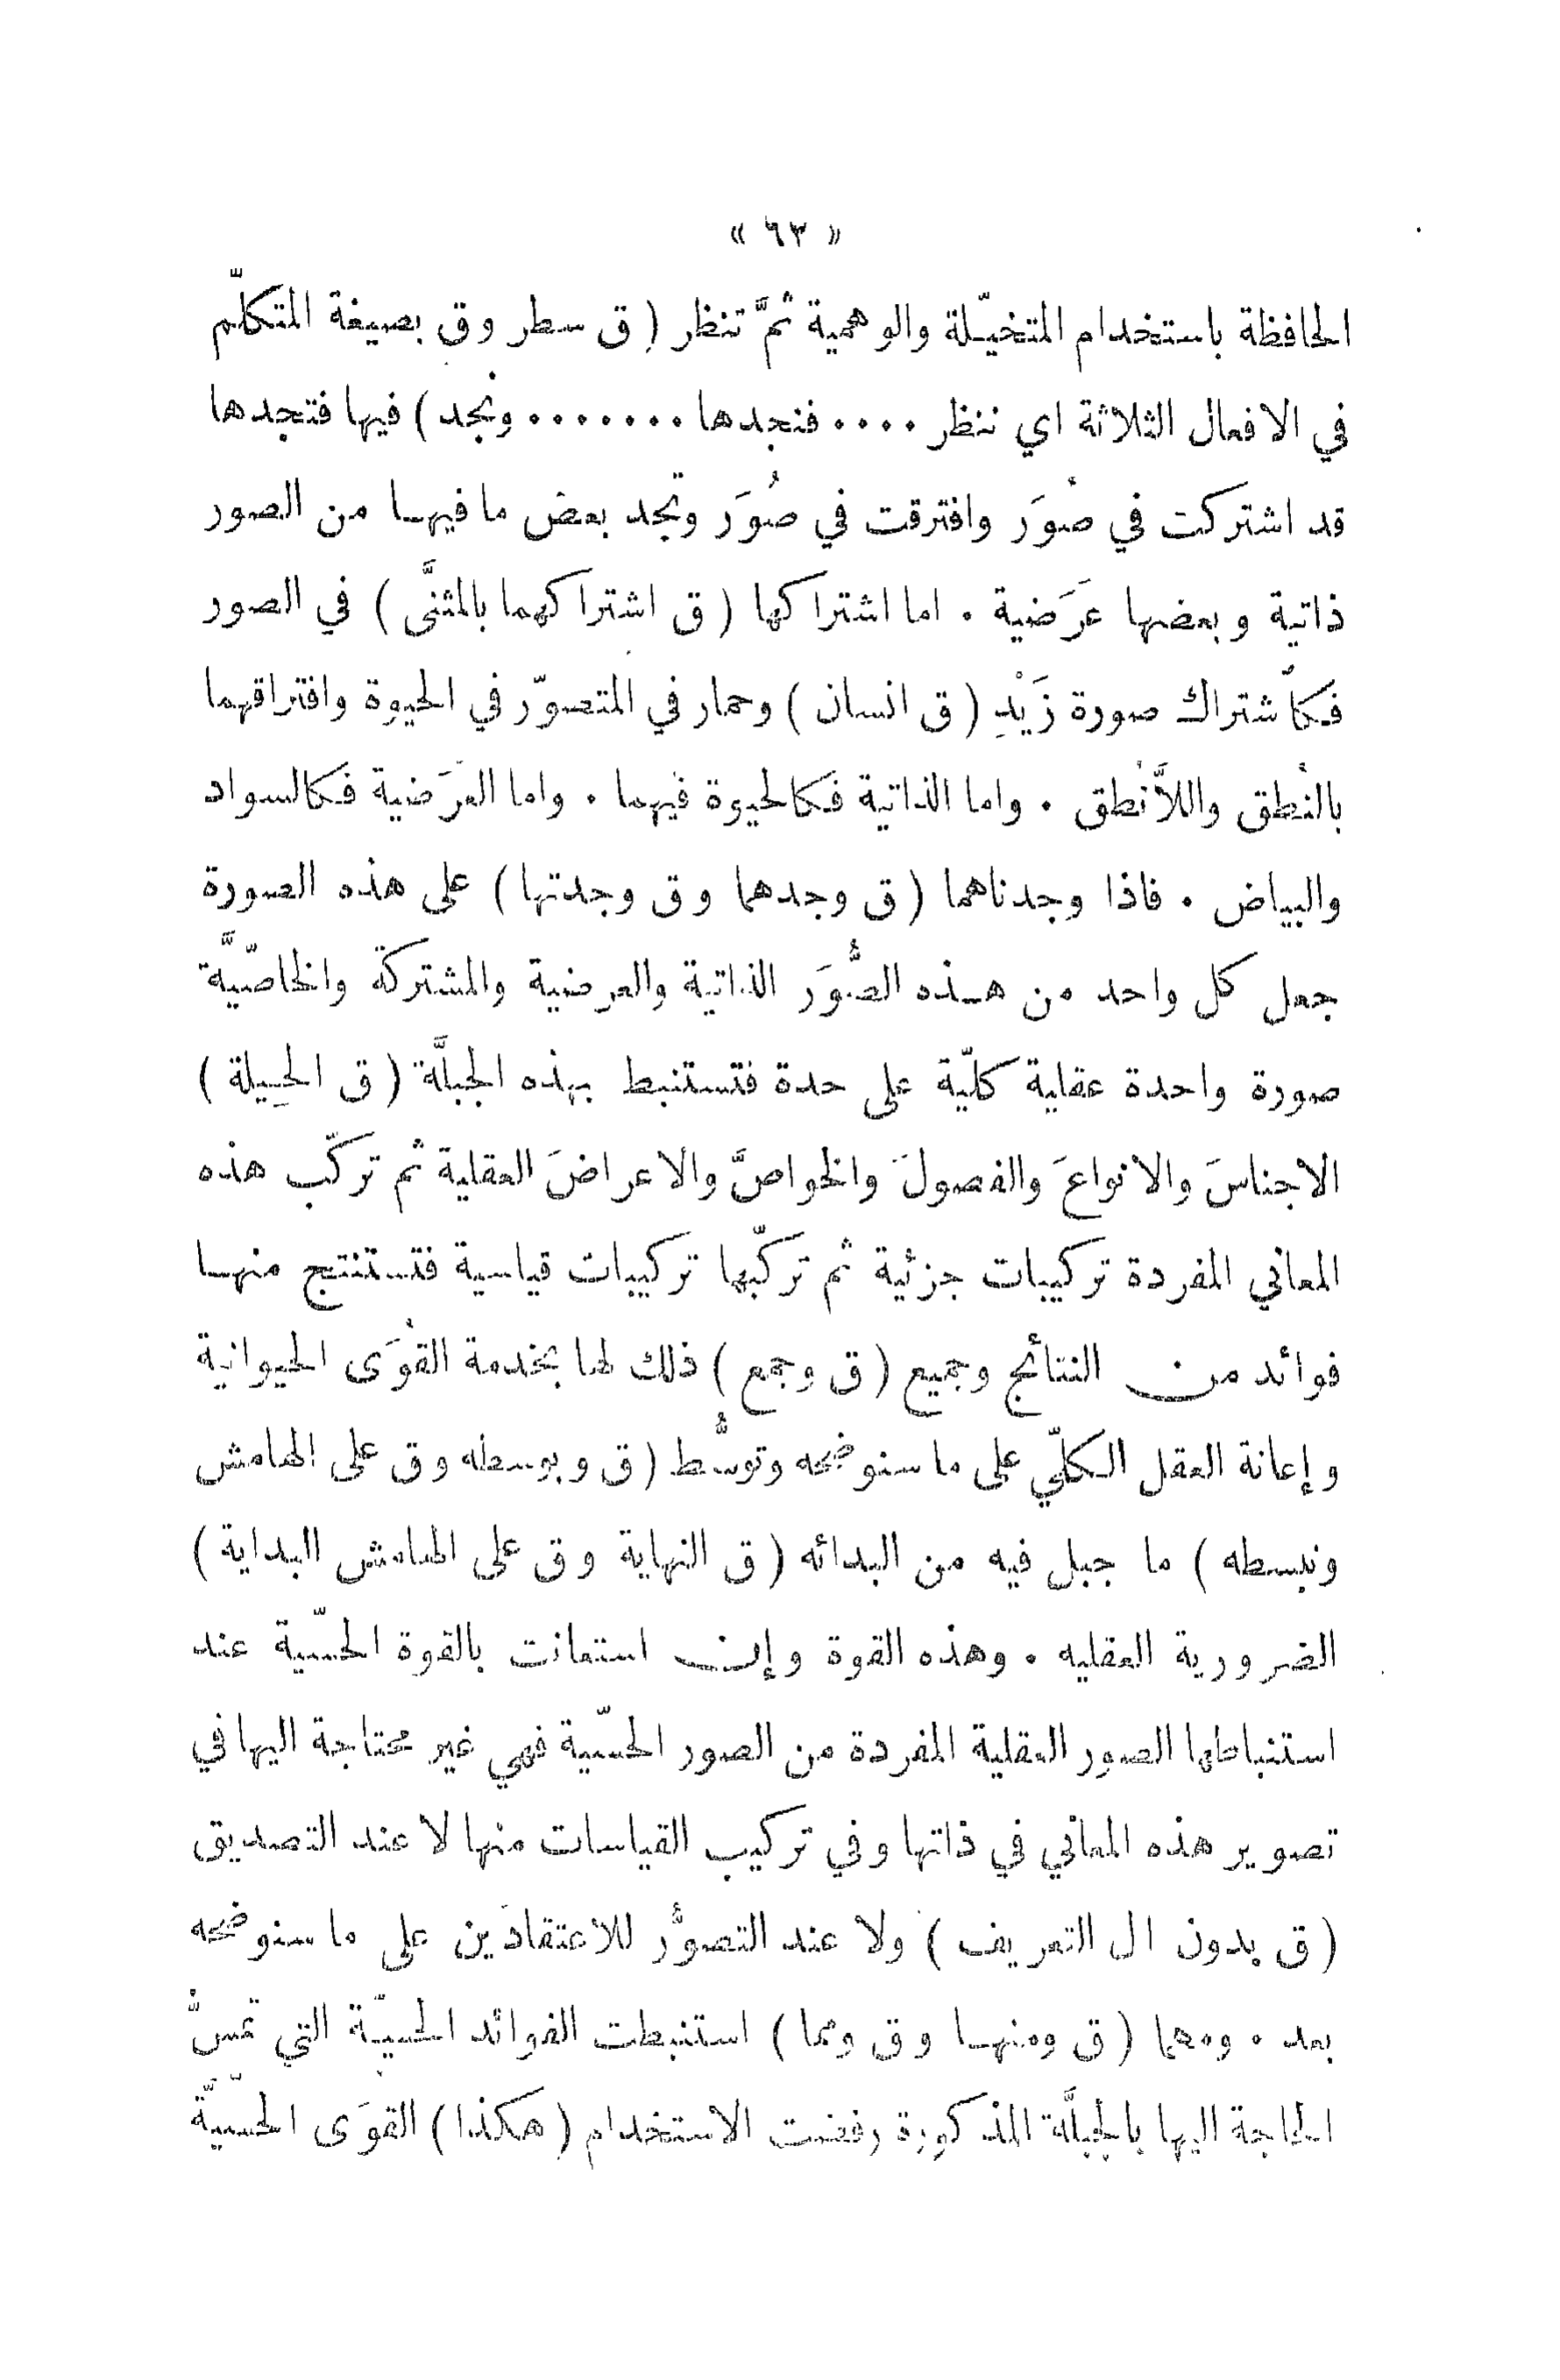 « ٦٣ »
الحافظة باستخدام المتخيّلة والوهمية ثمَّ تنظر ( ق سطر وق بصيغة المتكلّم
في الافعال الثلاثة اي ننظر ٠٠٠٠ فنجدها ٠٠٠٠٠٠٠ ونجد ) فيها فتجدها
قد اشتركت في صُوَر وافترقت في صُوَر وتجد بعض ما فيها من الصور
ذاتية وبعضها عَرَضية ٠ اما اشتراكها ( ق اشتراكهما بالمثنَّى ) في الصور
فكاشتراك صورة زَيْدٍ ( ق انسان ) وحمار في المتصوّر في الحيوة وافتراقهما
بالنُطق واللاَّنُطق ٠ واما الذاتية فكالحيوة فيهما ٠ واما العَرَضية فكالسواد
والبياض ٠ فاذا وجدناهما ( ق وجدهما وق وجدتها ) على هذه الصورة
جعل كل واحد من هذه الصُّوَر الذاتية والعرضية والمشتركة والخاصّيَّة
صورة واحدة عقلية كلّية على حدة فتستنبط بهذه الجبلَّة ( ق الحِيلة )
الاجناسَ والانواعَ والفصولَ والخواصَّ والاعراضَ العقلية ثم تركّب هذه
المعاني المفردة تركيبات جزئية ثم تركّبها تركيبات قياسية فتستنتج منها
فوائد من النتائج وجميع ( ق وجمع ) ذلك لها بخدمة القُوَى الحيوانية
وإعانة العقل الكلّي على ما سنوضحه وتوسُّط ( ق وبوسطه وق على الهامش
ونبسطه ) ما جبل فيه من البدائه ( ق النهاية وق على الهامش البداية )
الضرورية العقليه ٠ وهذه القوة وإن استعانت بالقوة الحسّية عند
استنباطها الصور العقلية المفردة من الصور الحسّية فهي غير محتاجة اليها في
تصوير هذه المعاني في ذاتها وفي تركيب القياسات منها لا عند التصديق
( ق بدون ال التعريف ) ولا عند التصوُّر للاعتقادَين على ما سنوضحه
بعد ٠ ومهما ( ق ومنها وق ومما ) استنبطت الفوائد الحسيّة التي تمسُّ
الحاجة اليها بالجبلَّة المذكورة رفضت الاستخدام ( هكذا ) القوَى الحسّيَّة